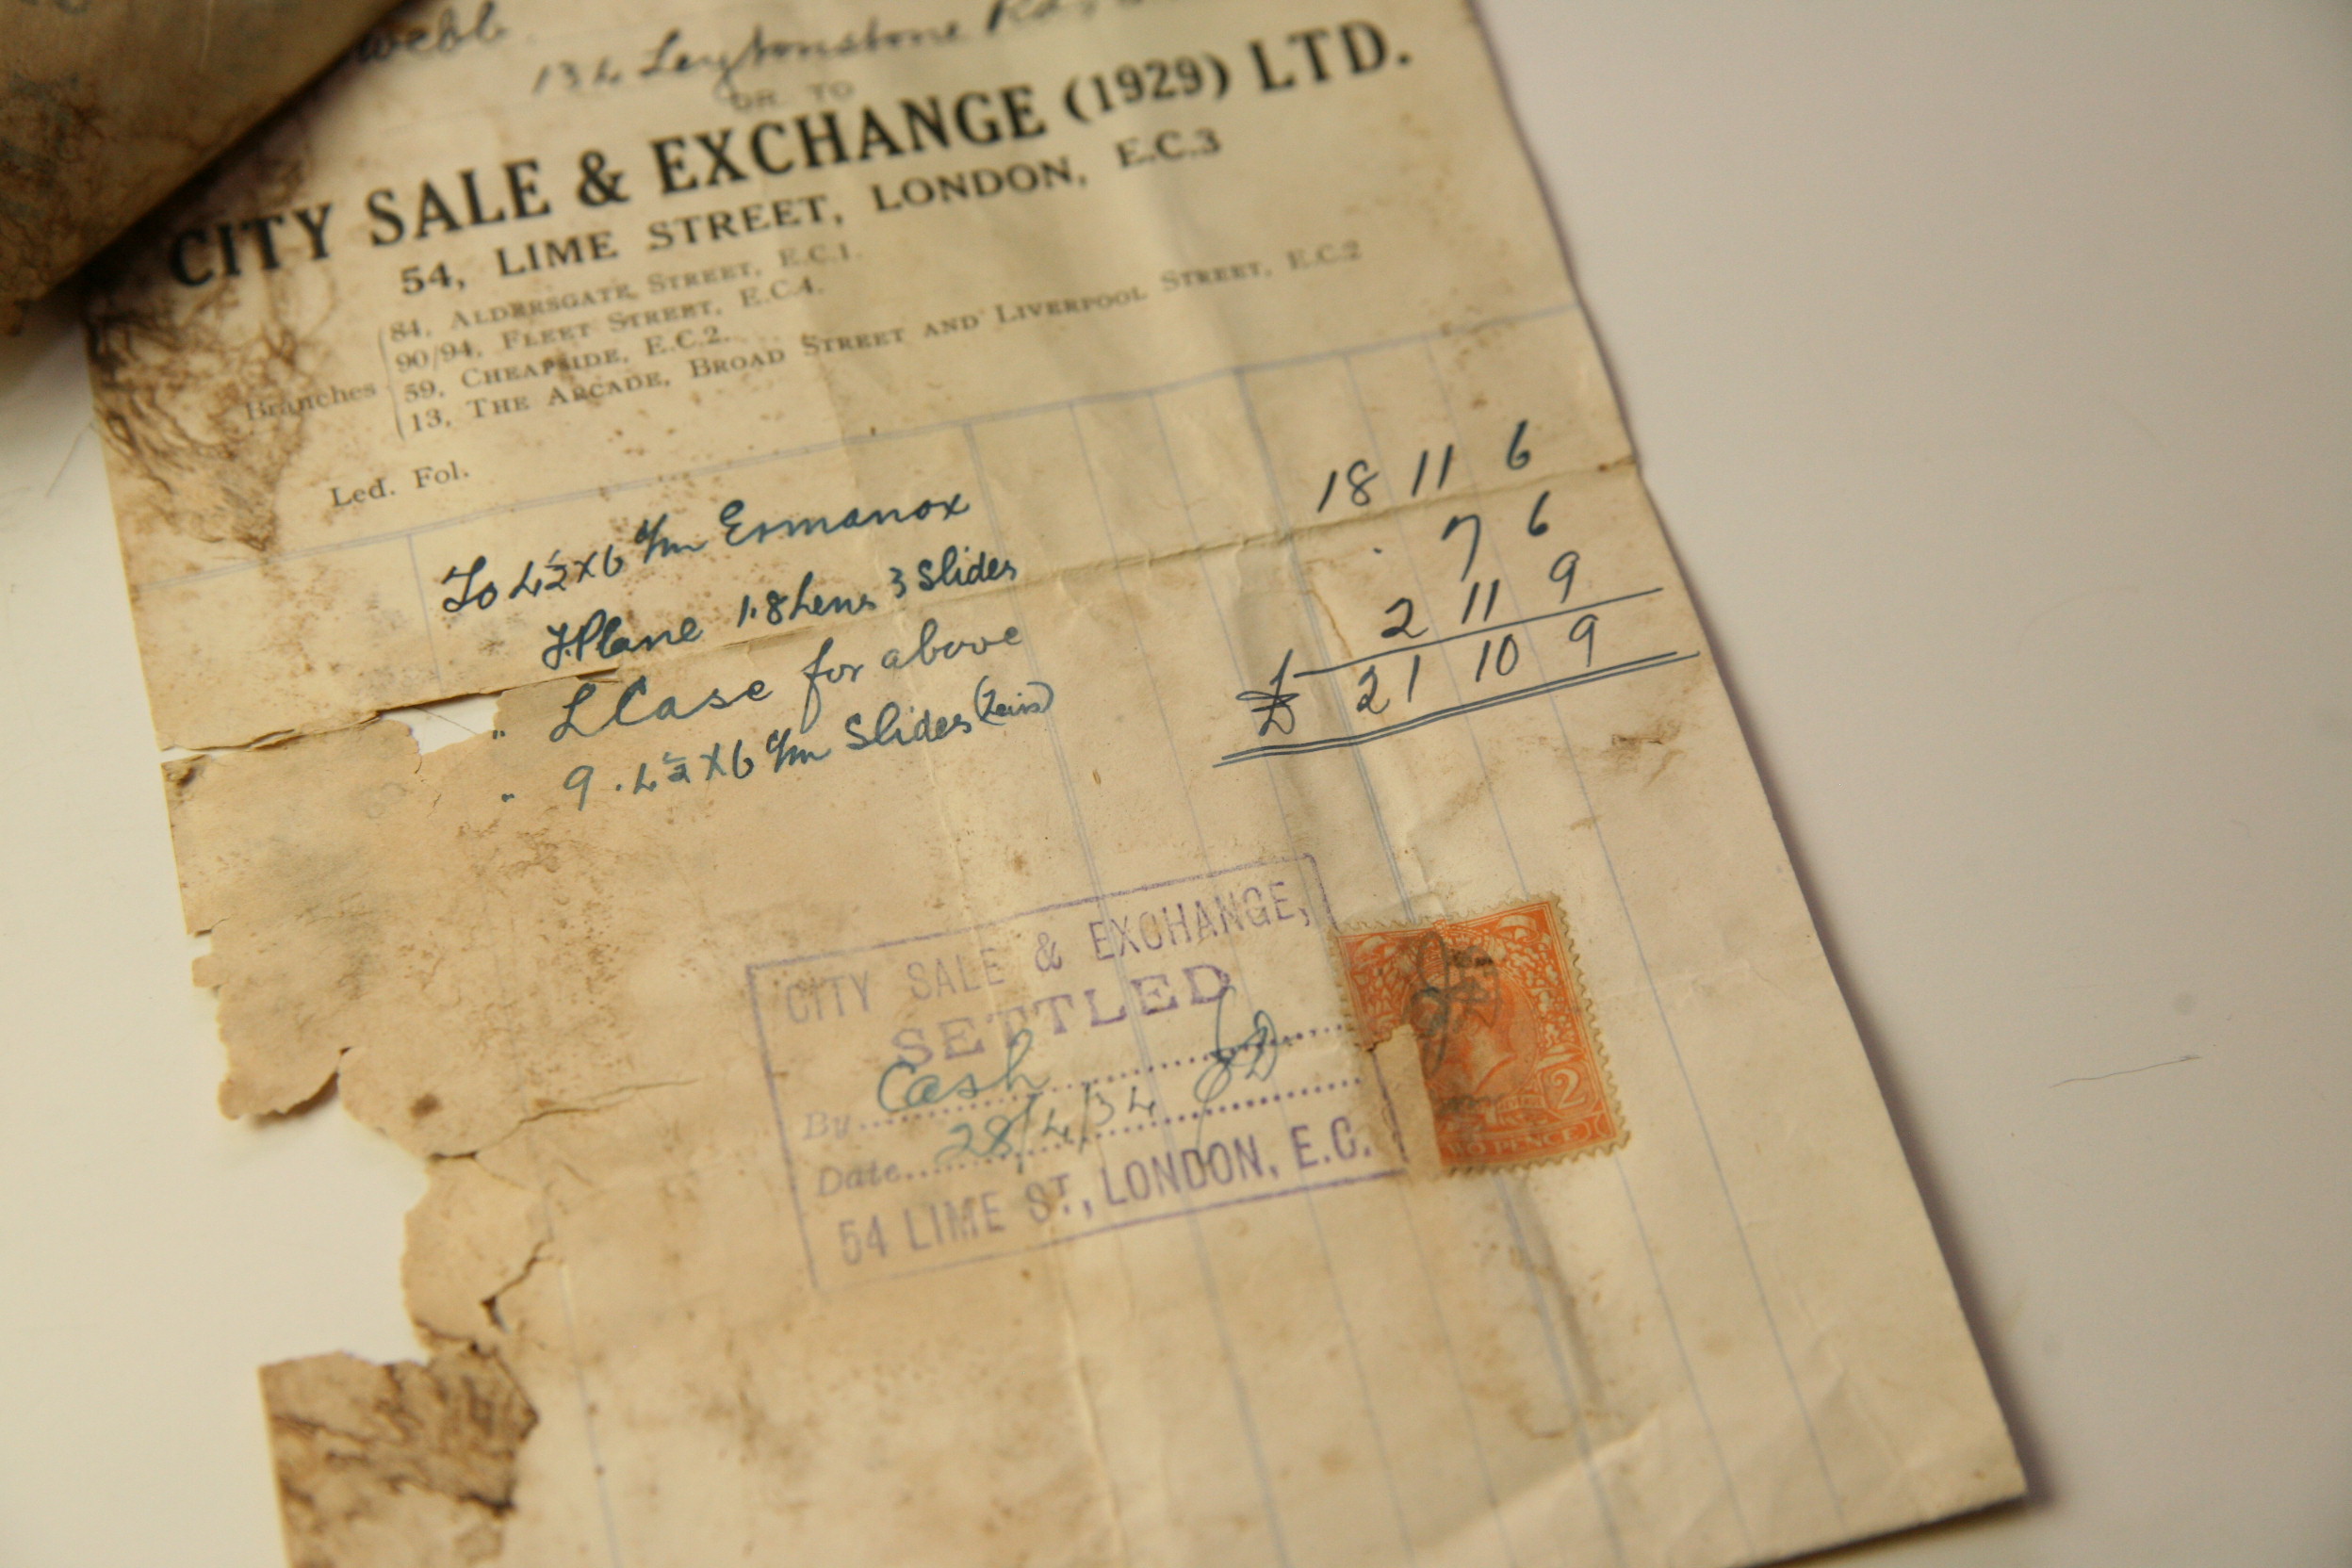 Webb.
134 Leytonstone Rd,
OR TO
CITY SALE & EXCHANGE (1929) LTD.
54, LIME STREET, LONDON, E.C.3
Branches
84, ALDERSGATE STREET, E.C.1.
90/94, FLEET STREET, E.C.4.
59, CHEAPSIDE, E.C.2.
13, THE ARCADE, BROAD STREET AND LIVERPOOL STREET, E.C.2
Led. Fol.
To 4½ x 6 c/m Ermanox 18 11 6
F.Plane 1.8 Lens 3 Slides
" L Case for above 7 6
" 9 . 4½ x 6 c/m Slides (Zeiss) 2 11 9
£ 21 10 9
CITY SALE & EXCHANGE,
SETTLED
By Cash
Date 28/4/34
54 LIME ST., LONDON, E.C.
2
PENCE